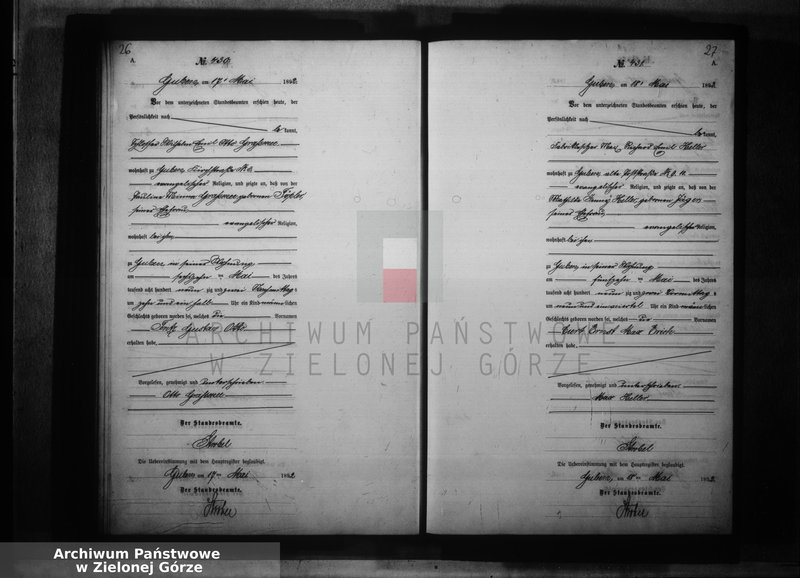 26
A.
№ 430.
Guben am 17t Mai 1892
Vor dem unterzeichneten Standesbeamten erschien heute, der
Persönlichkeit nach
kannt,
Schlosser Wilhelm Emil Otto
wohnhaft zu Guben,
evangelischer Religion, und zeigte an, daß von der
Pauline geborenen
seiner Ehefrau
evangelischer Religion,
wohnhaft bei ihm,
zu Guben in seiner Wohnung
am sechszehnten Mai des Jahres
tausend acht hundert neunzig und zwei Nachmittags
um zehn und ein halb Uhr ein Kind männlichen
Geschlechts geboren worden sei, welches die Vornamen
Fritz Gustav Otto
erhalten habe.
Vorgelesen, genehmigt und unterschrieben
Otto
Der Standesbeamte.
Die Uebereinstimmung mit dem Hauptregister beglaubigt.
Guben, am 17ten Mai 1892
Der Standesbeamte.
27
A.
№ 431.
Guben am 18t Mai 1892
Vor dem unterzeichneten Standesbeamten erschien heute, der
Persönlichkeit nach
kannt,
Max Richard Emil Heller
wohnhaft zu Guben, alte Poststraße No. 11.
evangelischer Religion, und zeigte an, daß von der
Mathilde Heller, geborenen
seiner Ehefrau,
evangelischer Religion,
wohnhaft bei ihm,
zu Guben, in seiner Wohnung
am fünfzehnten Mai des Jahres
tausend acht hundert neunzig und zwei Vormittags
um neun und einviertel Uhr ein Kind männlichen
Geschlechts geboren worden sei, welches die Vornamen
Curt Ernst Max Erich
erhalten habe.
Vorgelesen, genehmigt und unterschrieben
Max Heller
Der Standesbeamte.
Die Uebereinstimmung mit dem Hauptregister beglaubigt.
Guben, am 18ten Mai 1892
Der Standesbeamte.
ARCHIWUM PAŃSTWOWE
W ZIELONEJ GÓRZE
Archiwum Państwowe
w Zielonej Górze